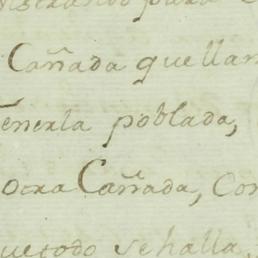 para
Cañada que llam
tenerla poblada,
otra Cañada, Con
que todo se halla,